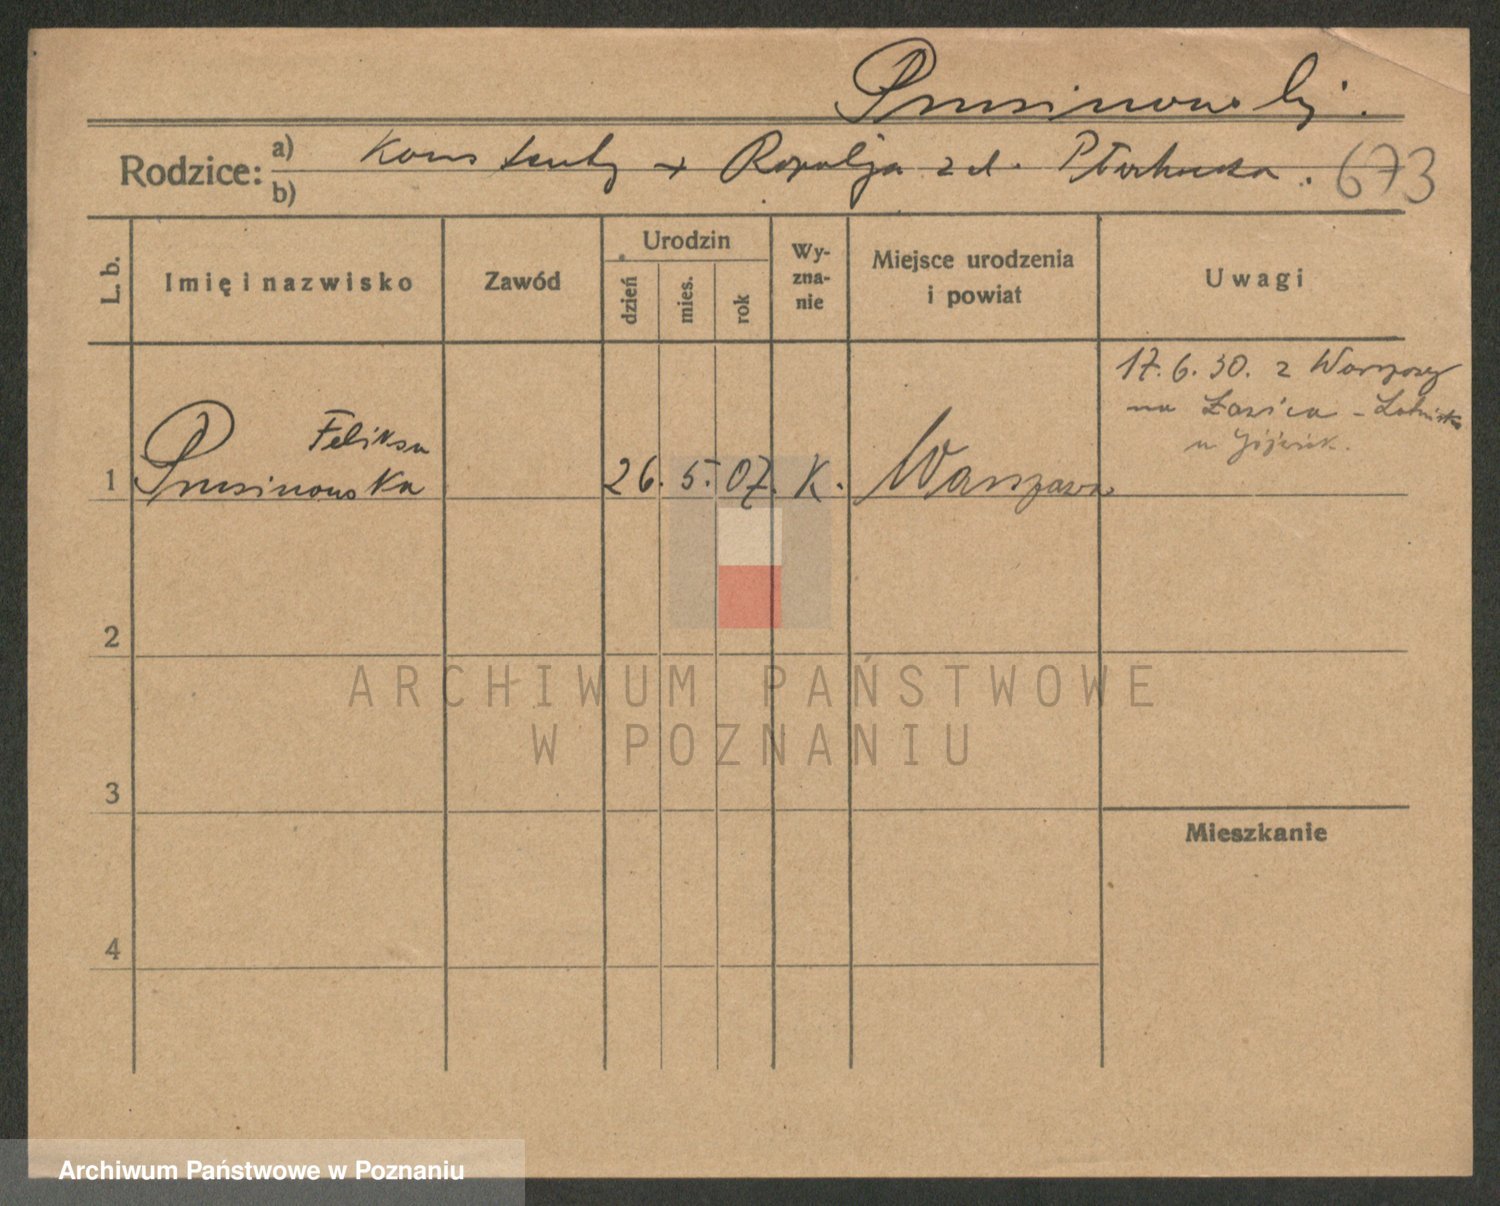 Prusinowski.
Rodzice: a) Konstanty + Rozalja z d.
b)
673
L. b.
Imię i nazwisko
Zawód
Urodzin
dzień
mies.
rok
Wy-
zna-
nie
Miejsce urodzenia
i powiat
Uwagi
17.6.30. z Warszawy
na Ławica -
w
Feliksa
1 Prusinowska 26. 5. 07. K. Warszawa
2
3
4
Mieszkanie
ARCHIWUM PAŃSTWOWE
W POZNANIU
Archiwum Państwowe w Poznaniu